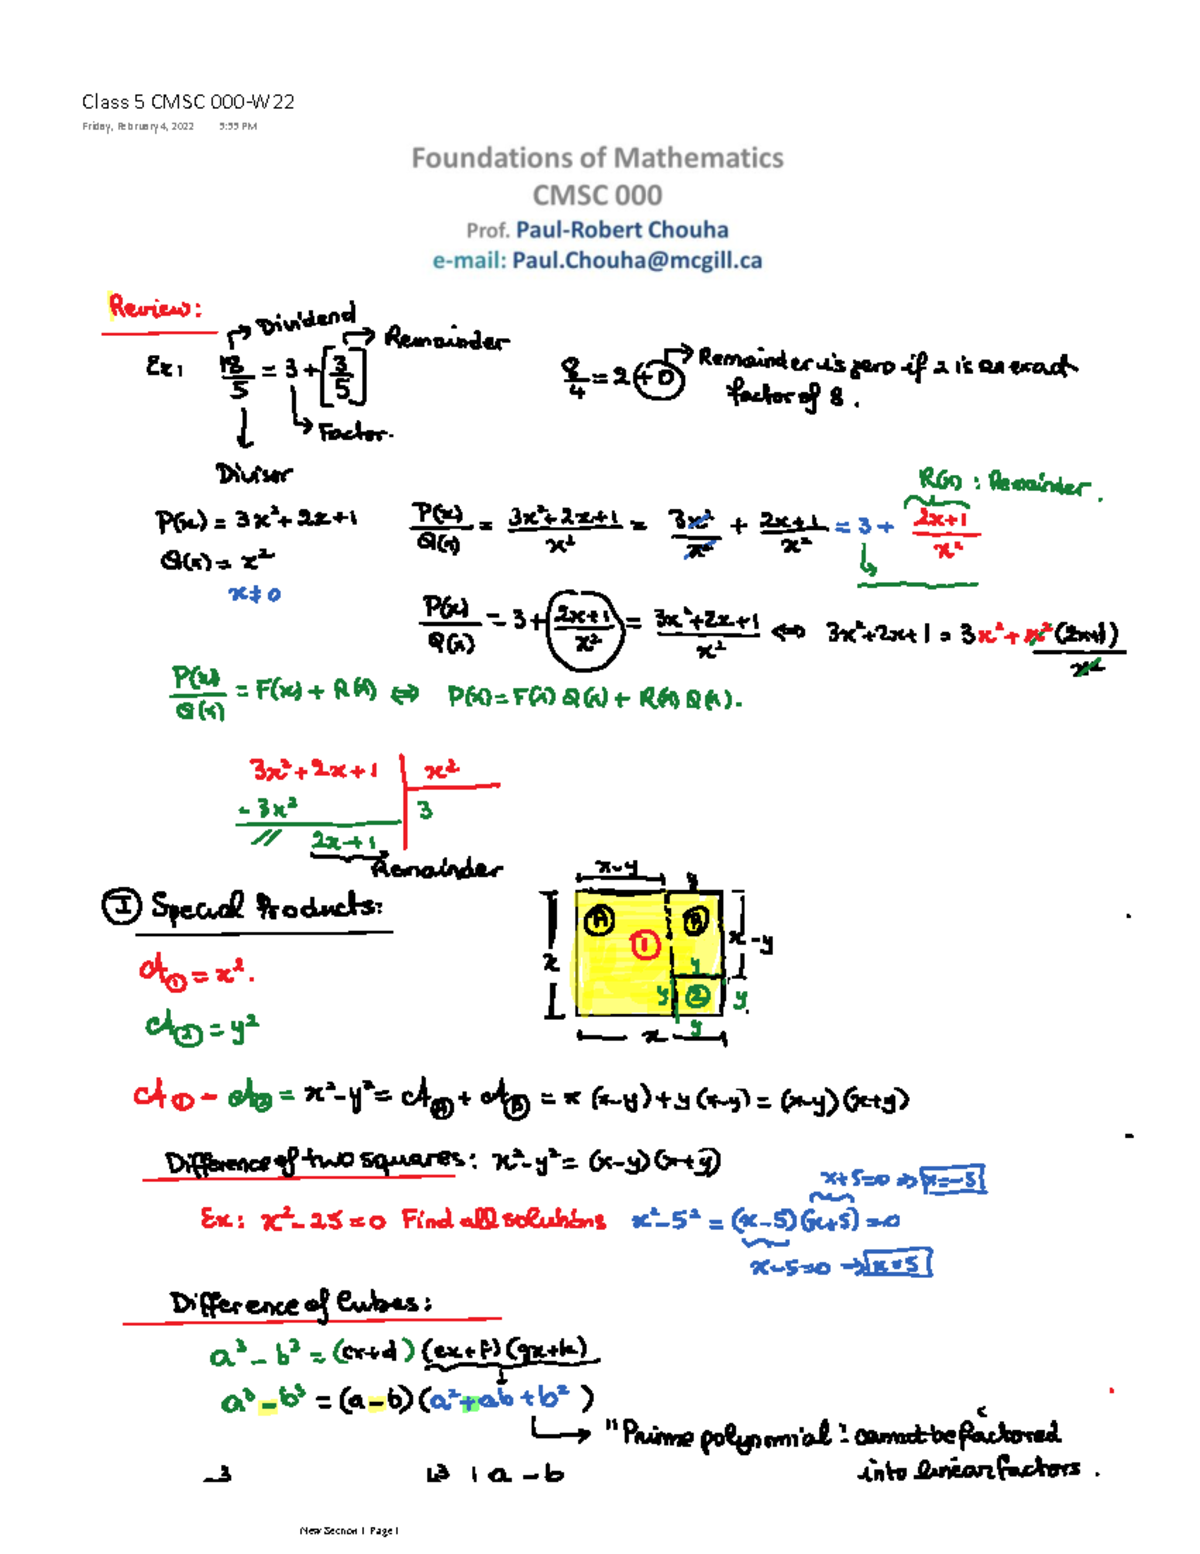 Class 5 CMSC 000-W22
Friday, February 4, 2022 5:55 PM
Foundations of Mathematics
CMSC 000
Prof. Paul-Robert Chouha
e-mail: Paul.Chouha@mcgill.ca
Review:
Dividend
Remainder
Ex: 18/5 = 3 + [3/5]
8/4 = 2 + 0 Remainder is zero if 2 is an exact
factor of 8.
Factor.
Divisor
R(x) : Remainder.
P(x) = 3x²+2x+1 P(x)/Q(x) = (3x²+2x+1)/x² = 3x²/x² + (2x+1)/x² = 3 + (2x+1)/x²
Q(x) = x²
x ≠ 0
P(x)/Q(x) = 3 + (2x+1)/x² = (3x²+2x+1)/x² ⇔ 3x²+2x+1 = 3x² + x²(2x+1)/x²
P(x)/Q(x) = F(x) + R(x) ⇔ P(x) = F(x) Q(x) + R(x) Q(x).
3x²+2x+1 | x²
- 3x² 3
// 2x+1
Remainder
x-y y
I Special Products:
A B
1
x x-y
A① = x².
y
y 2 y
A② = y²
y
x
A① - A② = x²-y² = A(A) + A(B) = x(x-y)+y(x-y) = (x-y)(x+y)
Difference of two squares: x²-y² = (x-y)(x+y)
x+5=0 ⇒ x=-5
Ex: x²-25=0 Find all solutions x²-5² = (x-5)(x+5) = 0
x-5=0 → x=5
Difference of Cubes:
a³-b³ = (cx+d)(ex+f)(gx+h)
a³-b³ = (a-b)(a²+ab+b²)
"Prime polynomial: cannot be factored
into linear factors.
a - b
New Section 1 Page 1